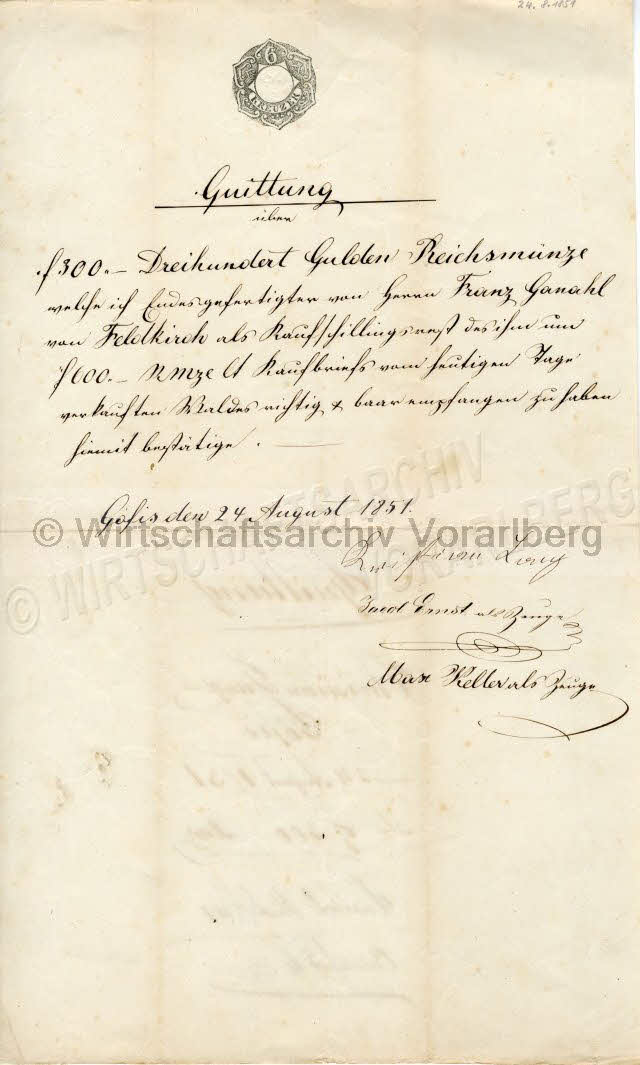 24. 8. 1851
6
KREUZER
Quittung
über
f 300.– Dreihundert Gulden Reichsmünze
welche ich Endesgefertigter von Herrn Franz Ganahl
von Feldkirch als Kaufschillingsrest des ihm um
f 600.– Rmze lt Kaufbriefs vom heutigen Tage
verkauften Waldes richtig & baar empfangen zu haben
hiemit bestätige.
Göfis den 24 August 1851.
© Wirtschaftsarchiv Vorarlberg
© WIRTSCHAFTSARCHIV VORARLBERG
Jacob Ernst als Zeuge
Max Keller als Zeuge